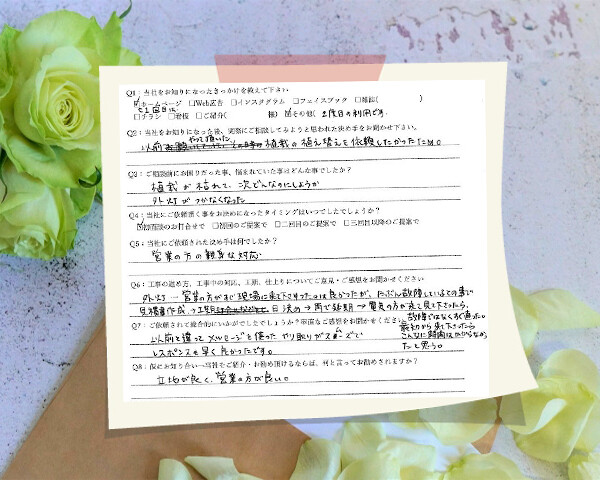 Q1：当社をお知りになったきっかけを教えて下さい
☑ホームページ □Web広告 □インスタグラム □フェイスブック □雑誌( )
1回目は
□チラシ □看板 □ご紹介( 様) ☑その他( 2度目の利用です。
Q2：当社をお知りになった後、実際にご相談してみようと思われた決め手をお聞かせ下さい。
やって頂いた
以前 植栽の植え替えを依頼したかったため。
Q3：ご相談前にお困りだった事、悩まれていた事はどんな事でしたか？
植栽が枯れて、次どんなのにしようか
外灯がつかなくなった
Q4：当社にご依頼頂く事をお決めになったタイミングはいつでしたでしょうか？
☑初面談のお打合せで □初回のご提案で □二回目のご提案で □三回目以降のご提案で
Q5：当社にご依頼された決め手は何でしたか？
営業の方の親身な対応
Q6：工事の進め方、工事中の対応、工期、仕上りについてご意見・ご感想をお聞かせください
外灯→営業の方がまず現場に来て下さったのは良かったが、たぶん故障しているとの事で
見積書作成→工期 日決め→雨で延期→電気の方が来て見て下さったら、
故障ではなくすぐ直った。
最初から来て下さったら
こんなに時間はかからなかっ
たと思う。
Q7：ご依頼されて総合的にいかがでしたでしょうか？率直なご感想をお聞かせください
以前と違ってメッセージを使ったやり取りがスムーズで
レスポンスも早く良かったです。
Q8：仮にお知り合いへ当社をご紹介・お勧め頂けるならば、何と言ってお勧めされますか？
立地が良く、営業の方が良い。